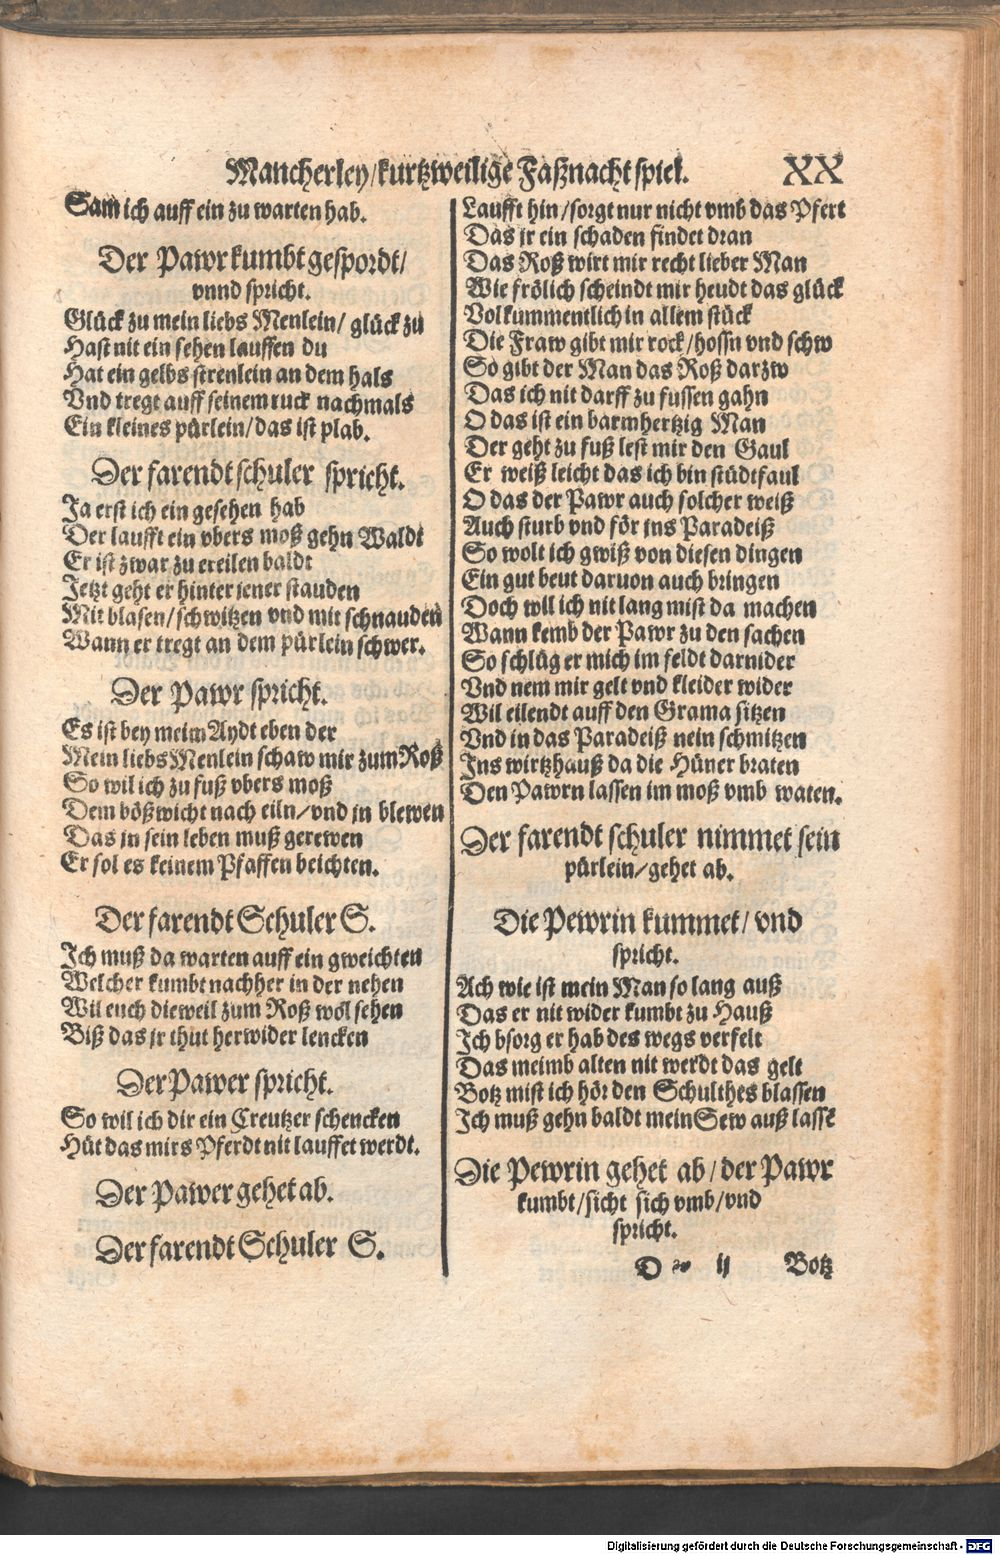 Mancherley/kurtzweilige Faßnacht spiel. XX
Sam ich auff ein zu warten hab.
Der Pawr kumbt gespordt/
vnnd spricht.
Glück zu mein liebs Menlein/ glück zu
Hast nit ein sehen lauffen du
Hat ein gelbs strenlein an dem hals
Vnd tregt auff seinem ruck nachmals
Ein kleines pürlein/das ist plab.
Der farendt schuler spricht.
Ja erst ich ein gesehen hab
Der laufft ein vbers moß gehn Waldt
Er ist zwar zu ereilen baldt
Jetzt geht er hinter jener stauden
Mit blasen/schwitzen vnd mit schnauden
Wann er tregt an dem pürlein schwer.
Der Pawr spricht.
Es ist bey meim Aydt eben der
Mein liebs Menlein schaw mir zum Roß
So wil ich zu fuß vbers moß
Dem bößwicht nach eiln/vnd jn blewen
Das jn sein leben muß gerewen
Er sol es keinem Pfaffen beichten.
Der farendt Schuler S.
Ich muß da warten auff ein gweichten
Welcher kumbt nachher in der nehen
Wil euch dieweil zum Roß wol sehen
Biß das jr thut herwider lencken
Der Pawer spricht.
So wil ich dir ein Creutzer schencken
Hüt das mirs Pferdt nit lauffet werdt.
Der Pawer gehet ab.
Der farendt Schuler S.
Laufft hin/sorgt nur nicht vmb das Pfert
Das jr ein schaden findet dran
Das Roß wirt mir recht lieber Man
Wie frölich scheindt mir heudt das glück
Volkummentlich in allem stück
Die Fraw gibt mir rock/hossn vnd schw
So gibt der Man das Roß darzw
Das ich nit darff zu fussen gahn
O das ist ein barmhertzig Man
Der geht zu fuß lest mir den Gaul
Er weiß leicht das ich bin stüdtfaul
O das der Pawr auch solcher weiß
Auch sturb vndför ins Paradeiß
So wolt ich gwiß von diesen dingen
Ein gut beut daruon auch bringen
Doch wil ich nit lang mist da machen
Wann kemb der Pawr zu den sachen
So schlüg er mich im feldt darnider
Vnd nem mir gelt vnd kleider wider
Wil eilendt auff den Grama sitzen
Vnd in das Paradeiß nein schmitzen
Ins wirtzhauß da die Hüner braten
Den Pawrn lassen im moß vmb waten.
Der farendt schuler nimmet sein
pürlein/gehet ab.
Die Pewrin kummet/ vnd
spricht.
Ach wie ist mein Man so lang auß
Das er nit wider kumbt zu Hauß
Ich bsorg er hab des wegs verfelt
Das meimb alten nit werdt das gelt
Botz mist ich hör den Schulthes blassen
Ich muß gehn baldt mein Sew auß lassē
Die Pewrin gehet ab/der Pawr
kumbt/sicht sich vmb/vnd
spricht.
D ij Botz
Digitalisierung gefördert durch die Deutsche Forschungsgemeinschaft - DFG